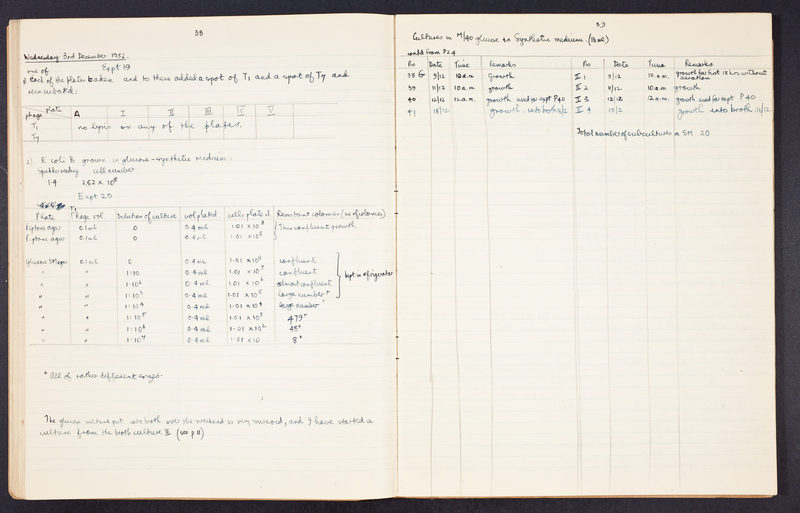 38
Wednesday 3rd December 1952.
Expt 19
one of
1) Each of the plates taken and to these added a spot of T1 and a spot of T7 and
reincubated.
phage plate A I II III IV V
T1 no lysis on any of the plates.
T7
2) E coli B grown in glucose-synthetic medium.
Spekker reading cell number
1.4 2.52 x 10⁸
Expt 20
T1
Plate Phage vol. Dilution of culture vol plated. cells plated Resistant colonies (no of colonies)
Peptone agar 0.1 ml 0 0.4 ml 1.01 x 10⁸ } Thin confluent growth
Peptone agar 0.1 ml 0 0.4 ml 1.01 x 10⁸
Glucose SM agar 0.1 ml 0 0.4 ml 1.01 x 10⁸ confluent.
" " 1:10 0.4 ml 1.01 x 10⁷ confluent
" " 1:10² 0.4 ml 1.01 x 10⁶ almost confluent } kept in refrigerator
" " 1:10³ 0.4 ml 1.01 x 10⁵ large number +
" " 1:10⁴ 0.4 ml 1.01 x 10⁴ large number +
" " 1:10⁵ 0.4 ml 1.01 x 10³ 479 +
" " 1:10⁶ 0.4 ml 1.01 x 10² 48 +
" " 1:10⁷ 0.4 ml 1.01 x 10 8 +
+ All of rather different sizes.
The glucose culture put into broth over the weekend is very mucoid, and I have started a
culture from the broth culture II (see p 11)
39
Cultures in M/40 glucose in Synthetic medium. (16 ml)
contd from P24
No Date Time Remarks No Date Time Remarks
38 G 9/12 10 a.m growth II 1 9/12 10 a.m. growth for first 18 hrs without aeration
39 11/12 10 a.m growth II 2 11/12 10 a.m growth
40 12/12 12 a.m. growth used for expt P40 II 3 12/12 12 a.m. growth used for expt P40
41 15/12 growth. into broth II 4 15/12 growth into broth
Total number of subcultures in SM 20